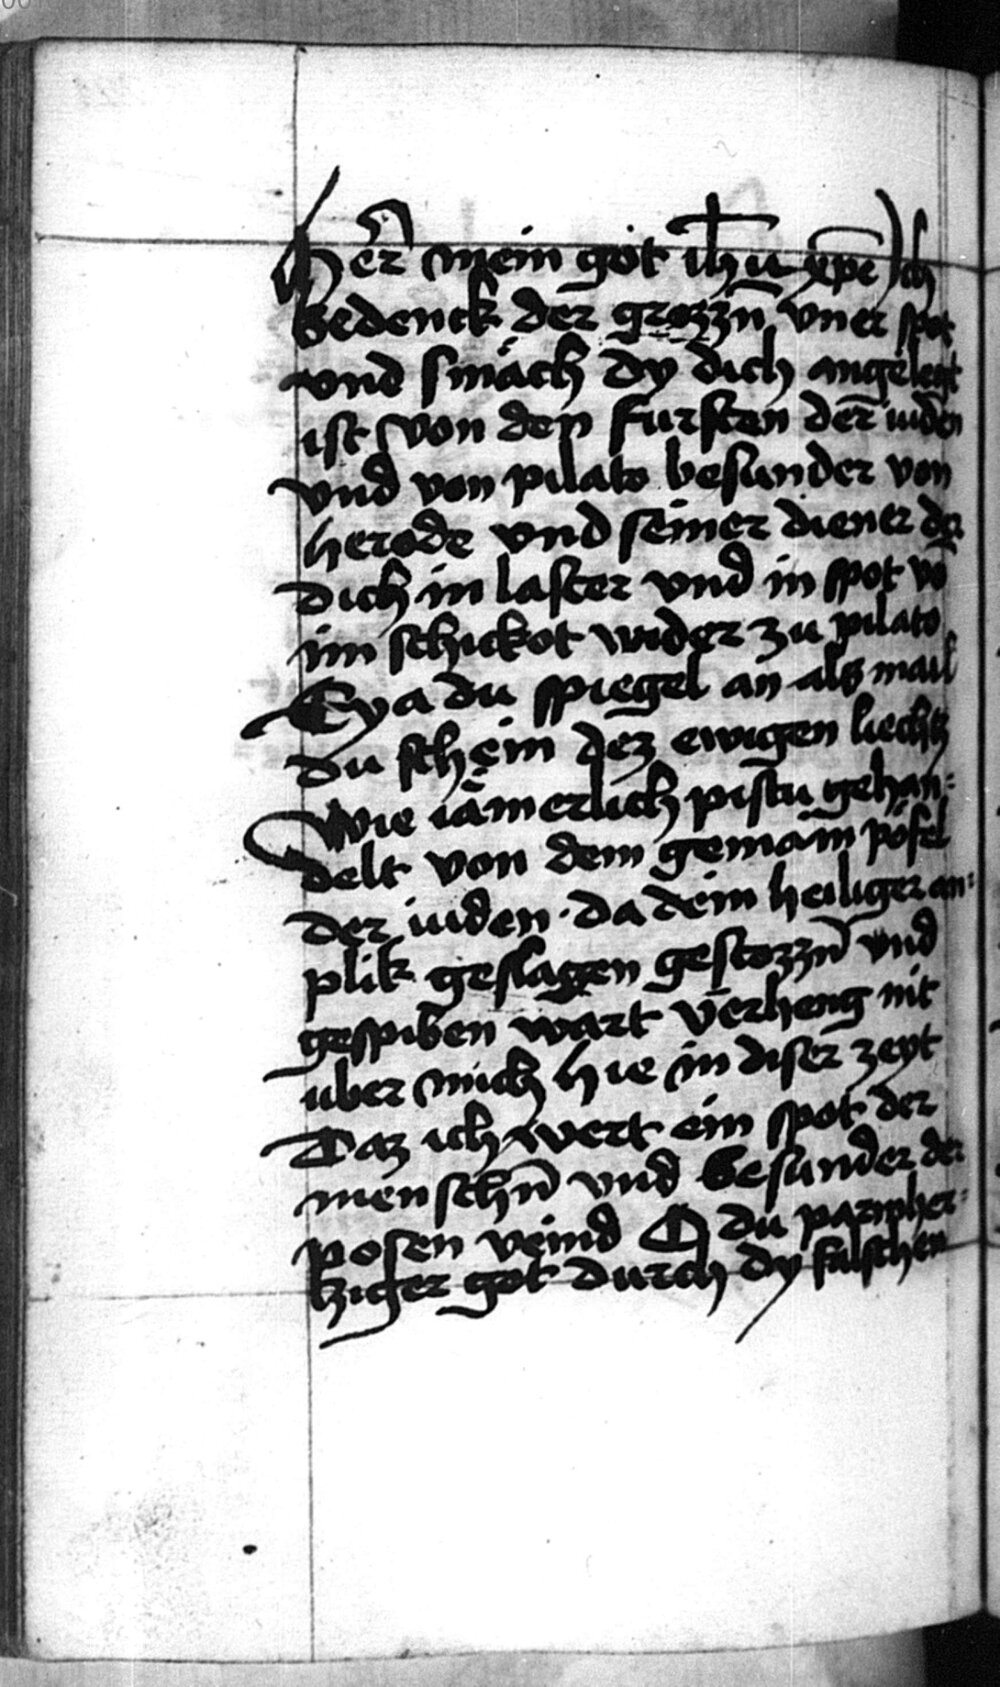 Her̄ mein got ih̄u xp̄e Ich
bedenck der grozzn̄ vner spot
vnd smäch dy dich angelegt
ist von den fursten der̄ iuden
vnd von pilato besunder von
herode vnd seiner diener der
dich in laster vnd in spot vō
im schickot wider zu pilato
Eya du spiegel an als mail
du schein dez ewigen liechtz
Wie iämerlich pistu gehan:
delt von dem gemain pöfel
der iuden · da dein heiliger an:
plik geslagen gestozzn̄ vnd
gespiben wart verheng nit
uber mich hie in diser zeyt
Daz ich wert ein spot der
menschn̄ vnd besunder der
posen veind O du parmher:
tziger got durch dy falschen